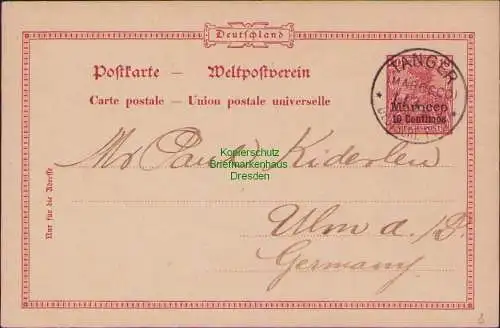 Deutschland
Postkarte — Weltpostverein
Carte postale — Union postale universelle
TANGER
MAROCCO
Marocco
10 Centimos
Nur für die Adresse
Kopierschutz
Briefmarkenhaus
Dresden
Mr Paul Kiderlen
Ulm a./D.
Germany